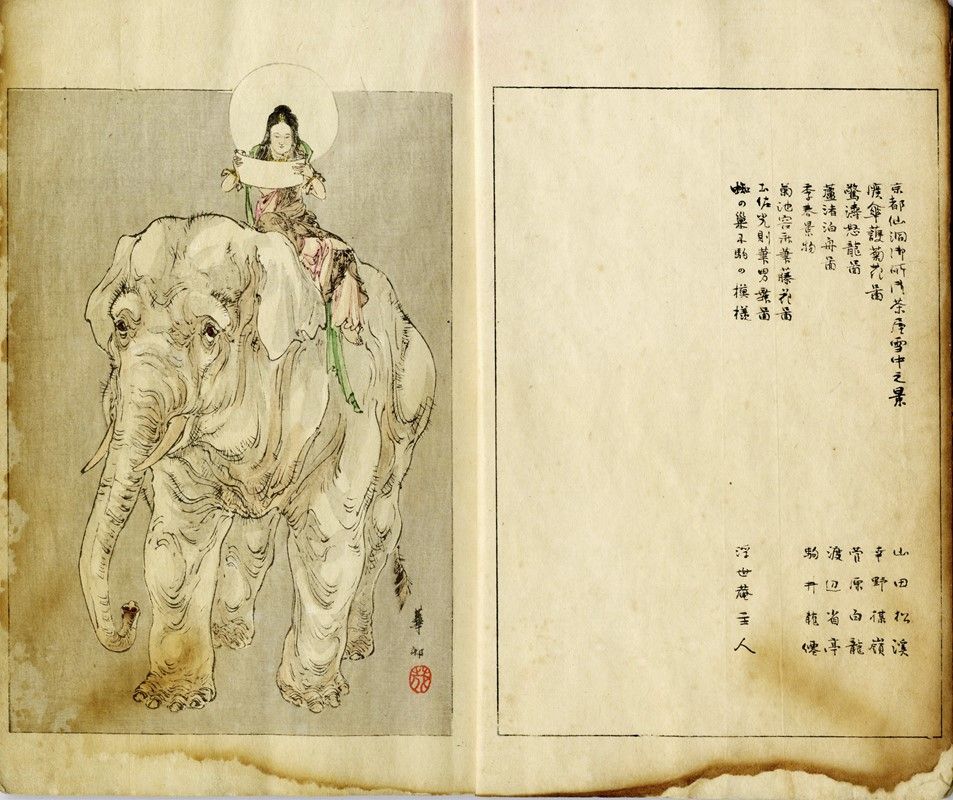 京都仙洞御所内茶屋雪中之景　山田松溪
傘護菊花啚　幸野楳嶺
驚濤怒龍啚　菅原白龍
蘆渚泊舟啚　渡辺省亭
季春景物　駒井龍僊
菊池容斎筆藤花啚
土佐光則筆男舞啚
蜘の巣に駒の模様　浮世菴主人
華邨